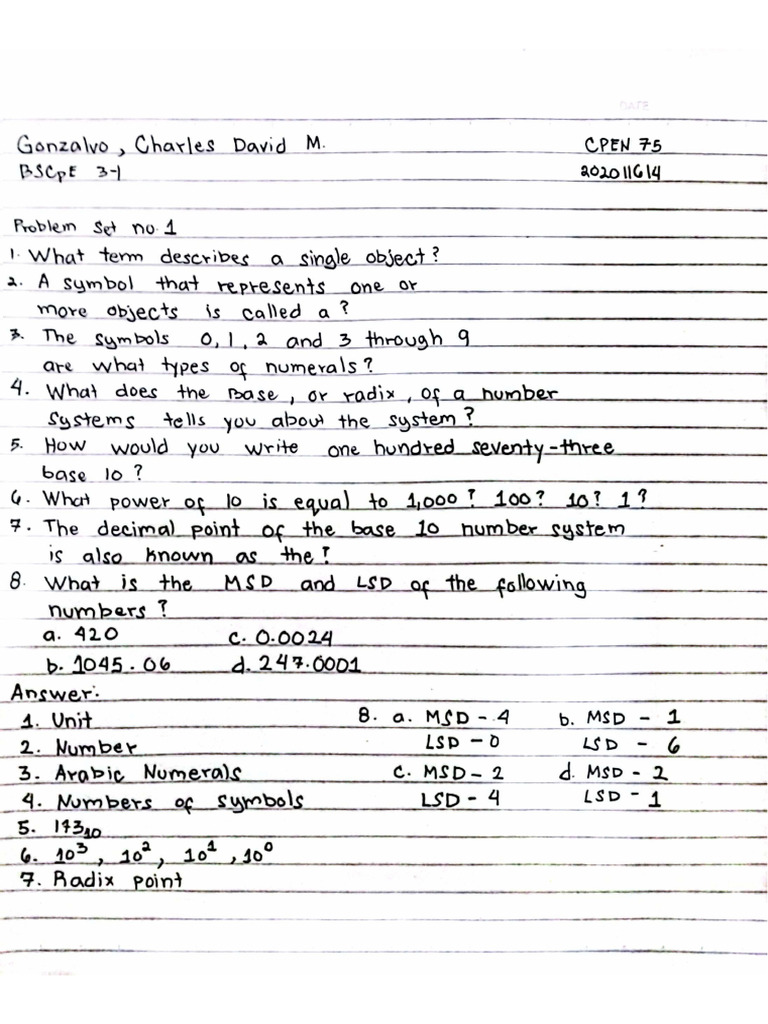 DATE
Gonzalvo, Charles David M. CPEN 75
BSCpE 3-1 202011614
Problem Set no. 1
1. What term describes a single object?
2. A symbol that represents one or
more objects is called a?
3. The symbols 0, 1, 2 and 3 through 9
are what types of numerals?
4. What does the Base, or radix, of a number
Systems tells you about the system?
5. How would you write one hundred seventy-three
base 10?
6. What power of 10 is equal to 1,000? 100? 10? 1?
7. The decimal point of the base 10 number system
is also known as the?
8. What is the MSD and LSD of the following
numbers?
a. 420 c. 0.0024
b. 1045.06 d. 247.0001
Answer:
1. Unit 8. a. MSD - 4 b. MSD - 1
2. Number LSD - 0 LSD - 6
3. Arabic Numerals c. MSD - 2 d. MSD - 2
4. Numbers of symbols LSD - 4 LSD - 1
5. 173₁₀
6. 10³, 10², 10¹, 10⁰
7. Radix point